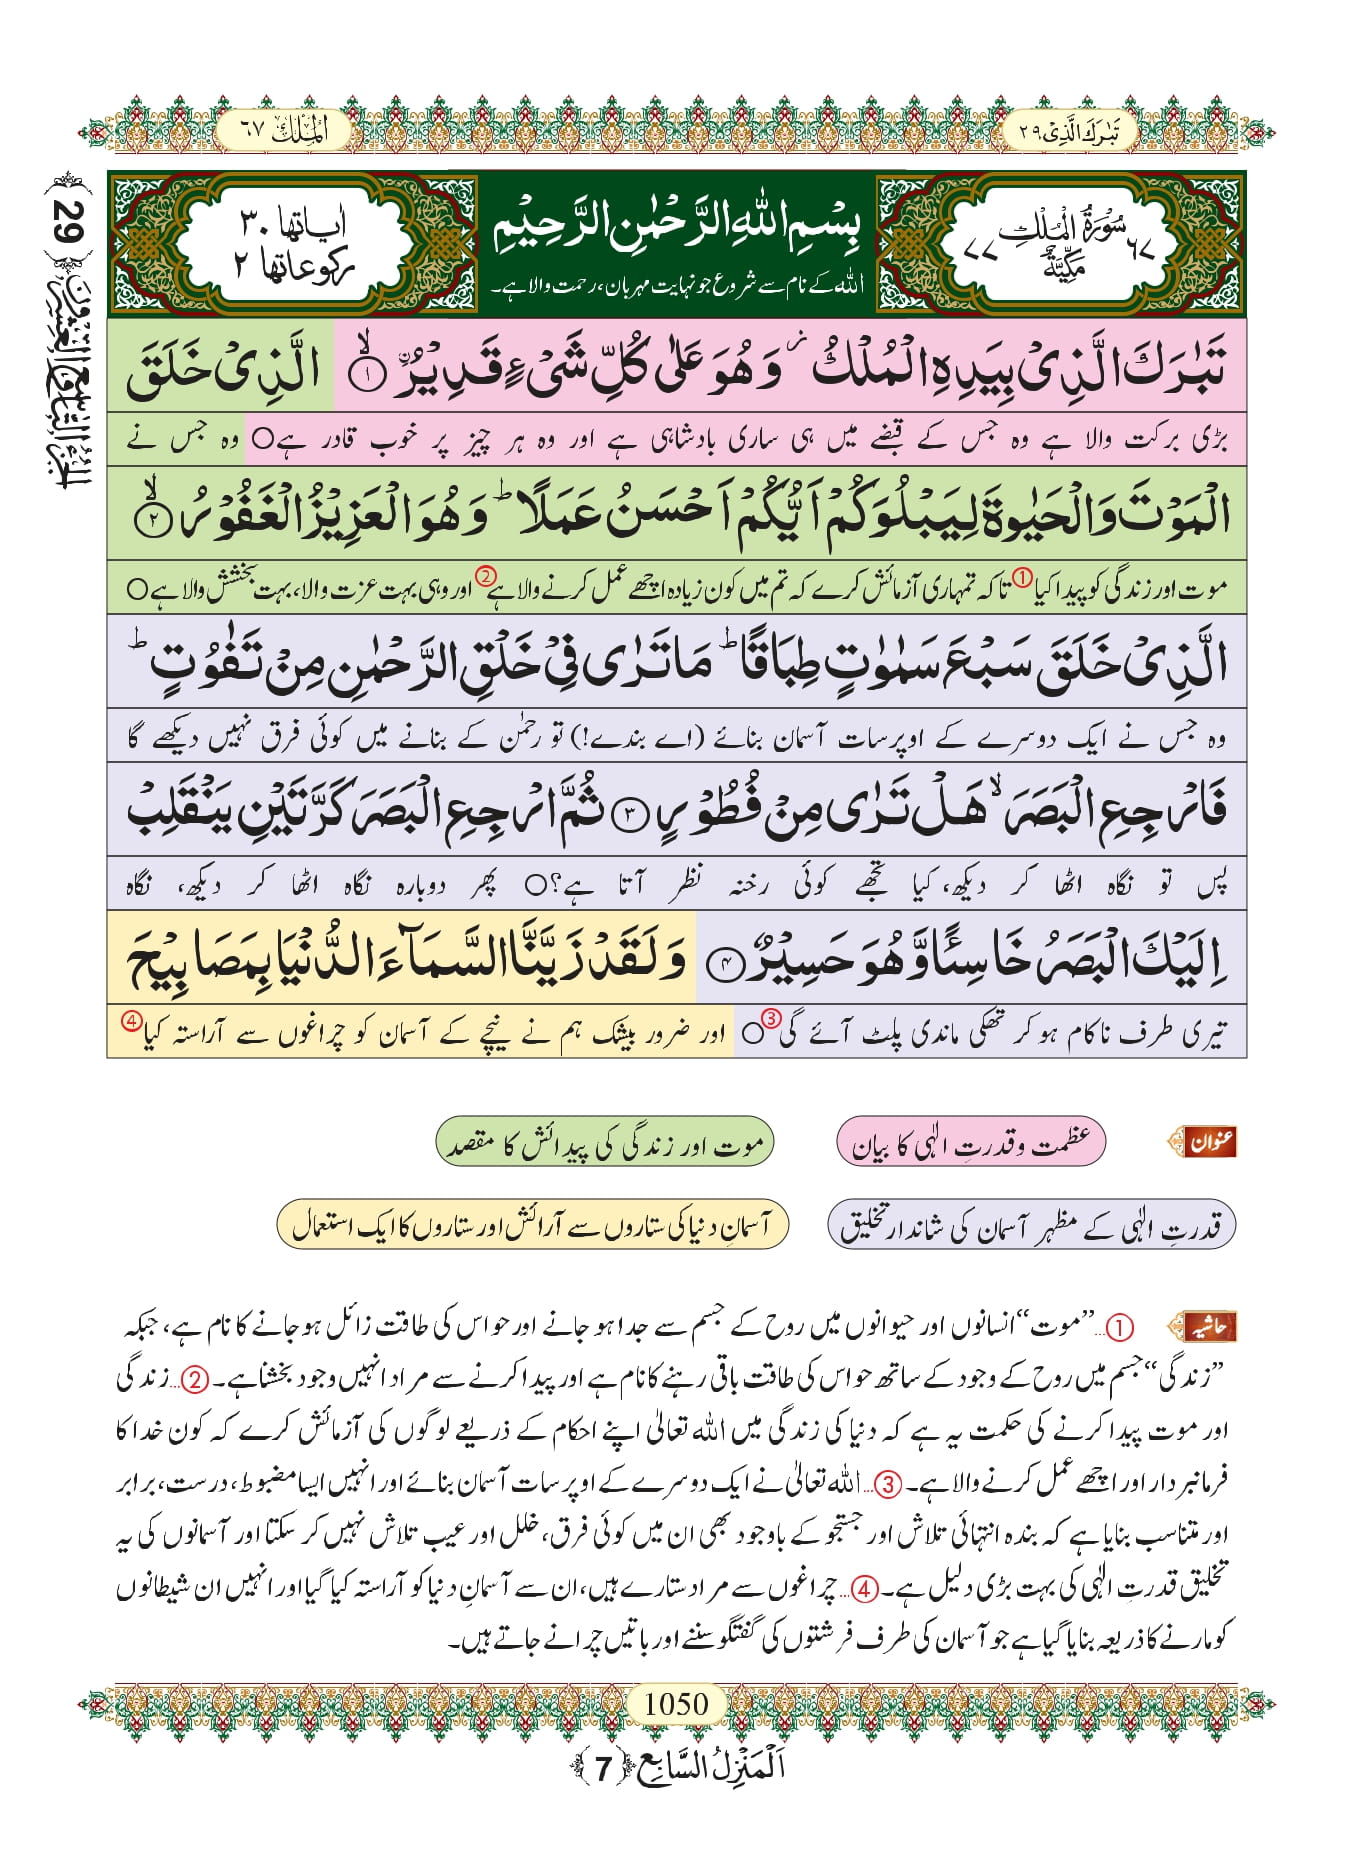 تَبٰرَكَ الَّذِیْ ۲۹
اَلْمُلْك ۶۷
﴿29﴾ اَلْجُزْءُ التَّاسِعُ وَالْعِشْرُوْنَ
۶۷ سُوْرَةُ الْمُلْكِ مَكِّيَّةٌ ۷۷
بِسْمِ اللّٰهِ الرَّحْمٰنِ الرَّحِیْمِ
اللہ کے نام سے شروع جو نہایت مہربان، رحمت والا ہے۔
اٰیاتھا ۳۰
رکوعاتھا ۲
تَبٰرَكَ الَّذِیْ بِیَدِهِ الْمُلْكُ ز وَ هُوَ عَلٰى كُلِّ شَیْءٍ قَدِیْرُ ۙ۝۱ الَّذِیْ خَلَقَ
بڑی برکت والا ہے وہ جس کے قبضے میں ہی ساری بادشاہی ہے اور وہ ہر چیز پر خوب قادر ہے○ وہ جس نے
الْمَوْتَ وَ الْحَیٰوةَ لِیَبْلُوَكُمْ اَیُّكُمْ اَحْسَنُ عَمَلًا ؕ وَ هُوَ الْعَزِیْزُ الْغَفُوْرُ ۙ۝۲
موت اور زندگی کو پیدا کیا① تاکہ تمہاری آزمائش کرے کہ تم میں کون زیادہ اچھے عمل کرنے والا ہے② اور وہی بہت عزت والا، بہت بخشش والا ہے○
الَّذِیْ خَلَقَ سَبْعَ سَمٰوٰتٍ طِبَاقًا ؕ مَا تَرٰى فِیْ خَلْقِ الرَّحْمٰنِ مِنْ تَفٰوُتٍ ؕ
وہ جس نے ایک دوسرے کے اوپر سات آسمان بنائے (اے بندے!) تو رحمٰن کے بنانے میں کوئی فرق نہیں دیکھے گا
فَارْجِعِ الْبَصَرَ ۙ هَلْ تَرٰى مِنْ فُطُوْرٍ ۝۳ ثُمَّ ارْجِعِ الْبَصَرَ كَرَّتَیْنِ یَنْقَلِبْ
پس تو نگاہ اٹھا کر دیکھ، کیا تجھے کوئی رخنہ نظر آتا ہے؟○ پھر دوبارہ نگاہ اٹھا کر دیکھ، نگاہ
اِلَیْكَ الْبَصَرُ خَاسِئًا وَّ هُوَ حَسِیْرٌ ۝۴ وَ لَقَدْ زَیَّنَّا السَّمَآءَ الدُّنْیَا بِمَصَابِیْحَ
تیری طرف ناکام ہو کر تھکی ماندی پلٹ آئے گی③○ اور ضرور بیشک ہم نے نیچے کے آسمان کو چراغوں سے آراستہ کیا④
عنوان
عظمت و قدرتِ الٰہی کا بیان
موت اور زندگی کی پیدائش کا مقصد
قدرتِ الٰہی کے مظہر آسمان کی شاندار تخلیق
آسمانِ دنیا کی ستاروں سے آرائش اور ستاروں کا ایک استعمال
حاشیہ
①…”موت“ انسانوں اور حیوانوں میں روح کے جسم سے جدا ہو جانے اور حواس کی طاقت زائل ہو جانے کا نام ہے، جبکہ
”زندگی“ جسم میں روح کے وجود کے ساتھ حواس کی طاقت باقی رہنے کا نام ہے اور پیدا کرنے سے مراد انہیں وجود بخشنا ہے۔ ②…زندگی
اور موت پیدا کرنے کی حکمت یہ ہے کہ دنیا کی زندگی میں اللہ تعالیٰ اپنے احکام کے ذریعے لوگوں کی آزمائش کرے کہ کون خدا کا
فرمانبردار اور اچھے عمل کرنے والا ہے۔ ③…اللہ تعالیٰ نے ایک دوسرے کے اوپر سات آسمان بنائے اور انہیں ایسا مضبوط، درست، برابر
اور متناسب بنایا ہے کہ بندہ انتہائی تلاش اور جستجو کے باوجود بھی ان میں کوئی فرق، خلل اور عیب تلاش نہیں کر سکتا اور آسمانوں کی یہ
تخلیق قدرتِ الٰہی کی بہت بڑی دلیل ہے۔ ④…چراغوں سے مراد ستارے ہیں، ان سے آسمانِ دنیا کو آراستہ کیا گیا اور انہیں ان شیطانوں
کو مارنے کا ذریعہ بنایا گیا ہے جو آسمان کی طرف فرشتوں کی گفتگو سننے اور باتیں چرانے جاتے ہیں۔
1050
اَلْمَنْزِلُ السَّابِع ﴿7﴾